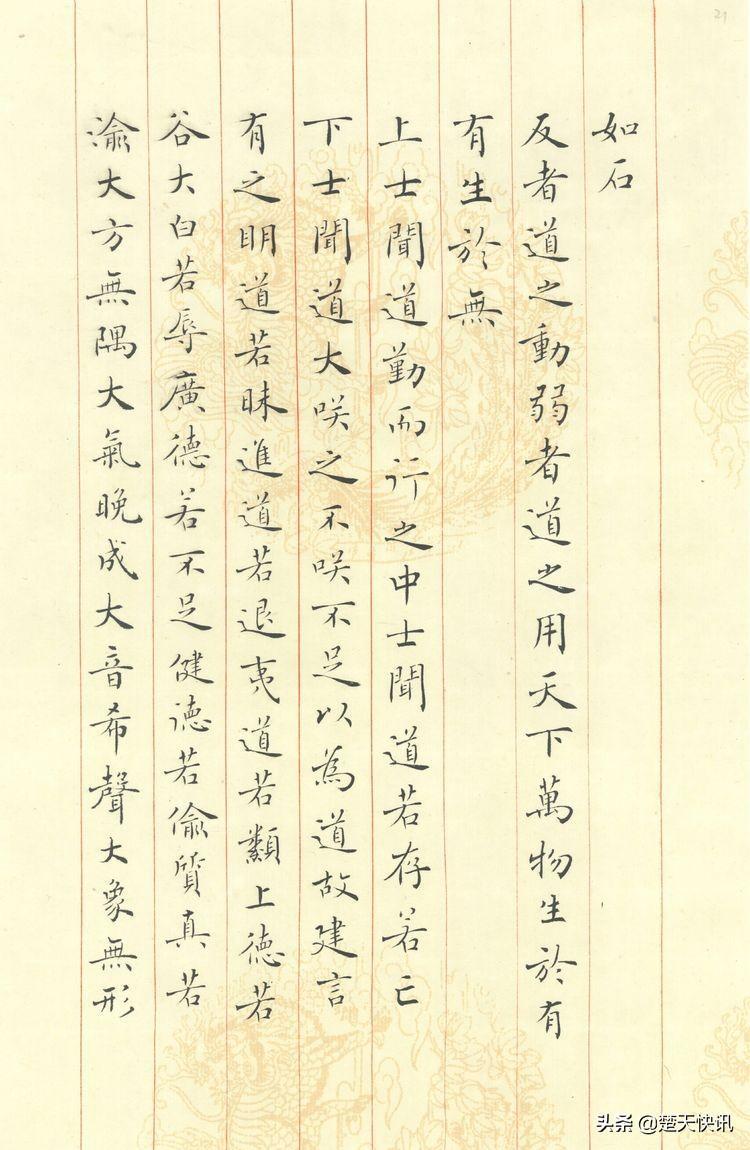 21
如石
反者道之動弱者道之用天下萬物生於有
有生於無
上士聞道勤而行之中士聞道若存若亡
下士聞道大咲之不咲不足以為道故建言
有之眀道若昧進道若退夷道若纇上德若
谷大白若辱廣德若不足健德若偷質真若
渝大方無隅大氣晚成大音希聲大象無形
头条 @楚天快讯